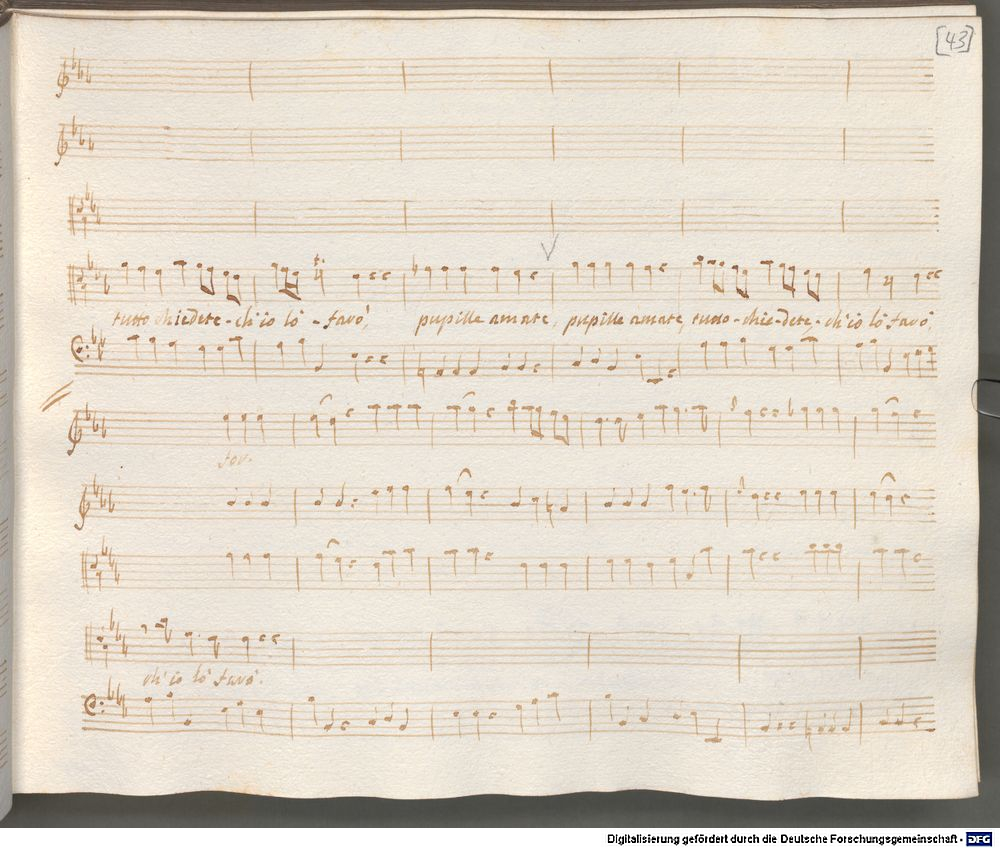 [43]
tutto chiedete - ch'io lo - farò, pupille amate, pupille amate, tutto - chie - dete - ch'io lo farò,
for.
ch'io lo farò.
Digitalisierung gefördert durch die Deutsche Forschungsgemeinschaft - DFG